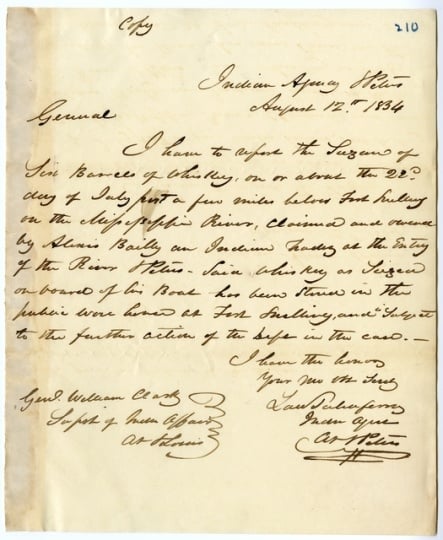 Copy
210
Indian Agency St Peters
August 12th 1834
General
I have to report the Seizure of
Six Barrels of Whiskey, on or about the 22d
day of July past a few miles below Fort Snelling
on the Mississippi River, claimed and owned
by Alexis Bailly an Indian Trader at the Entry
of the River St Peters - Said Whiskey as Seized
on board of his Boat has been Stored in the
public ware house at Fort Snelling, and Subject
to the further action of the Dept in the case. —
I have the honor
Your Mo Ob Servt
Law Taliaferro
Indn Agent
At St Peters
Genl. William Clark
Supt of Indn Affairs
At St Louis